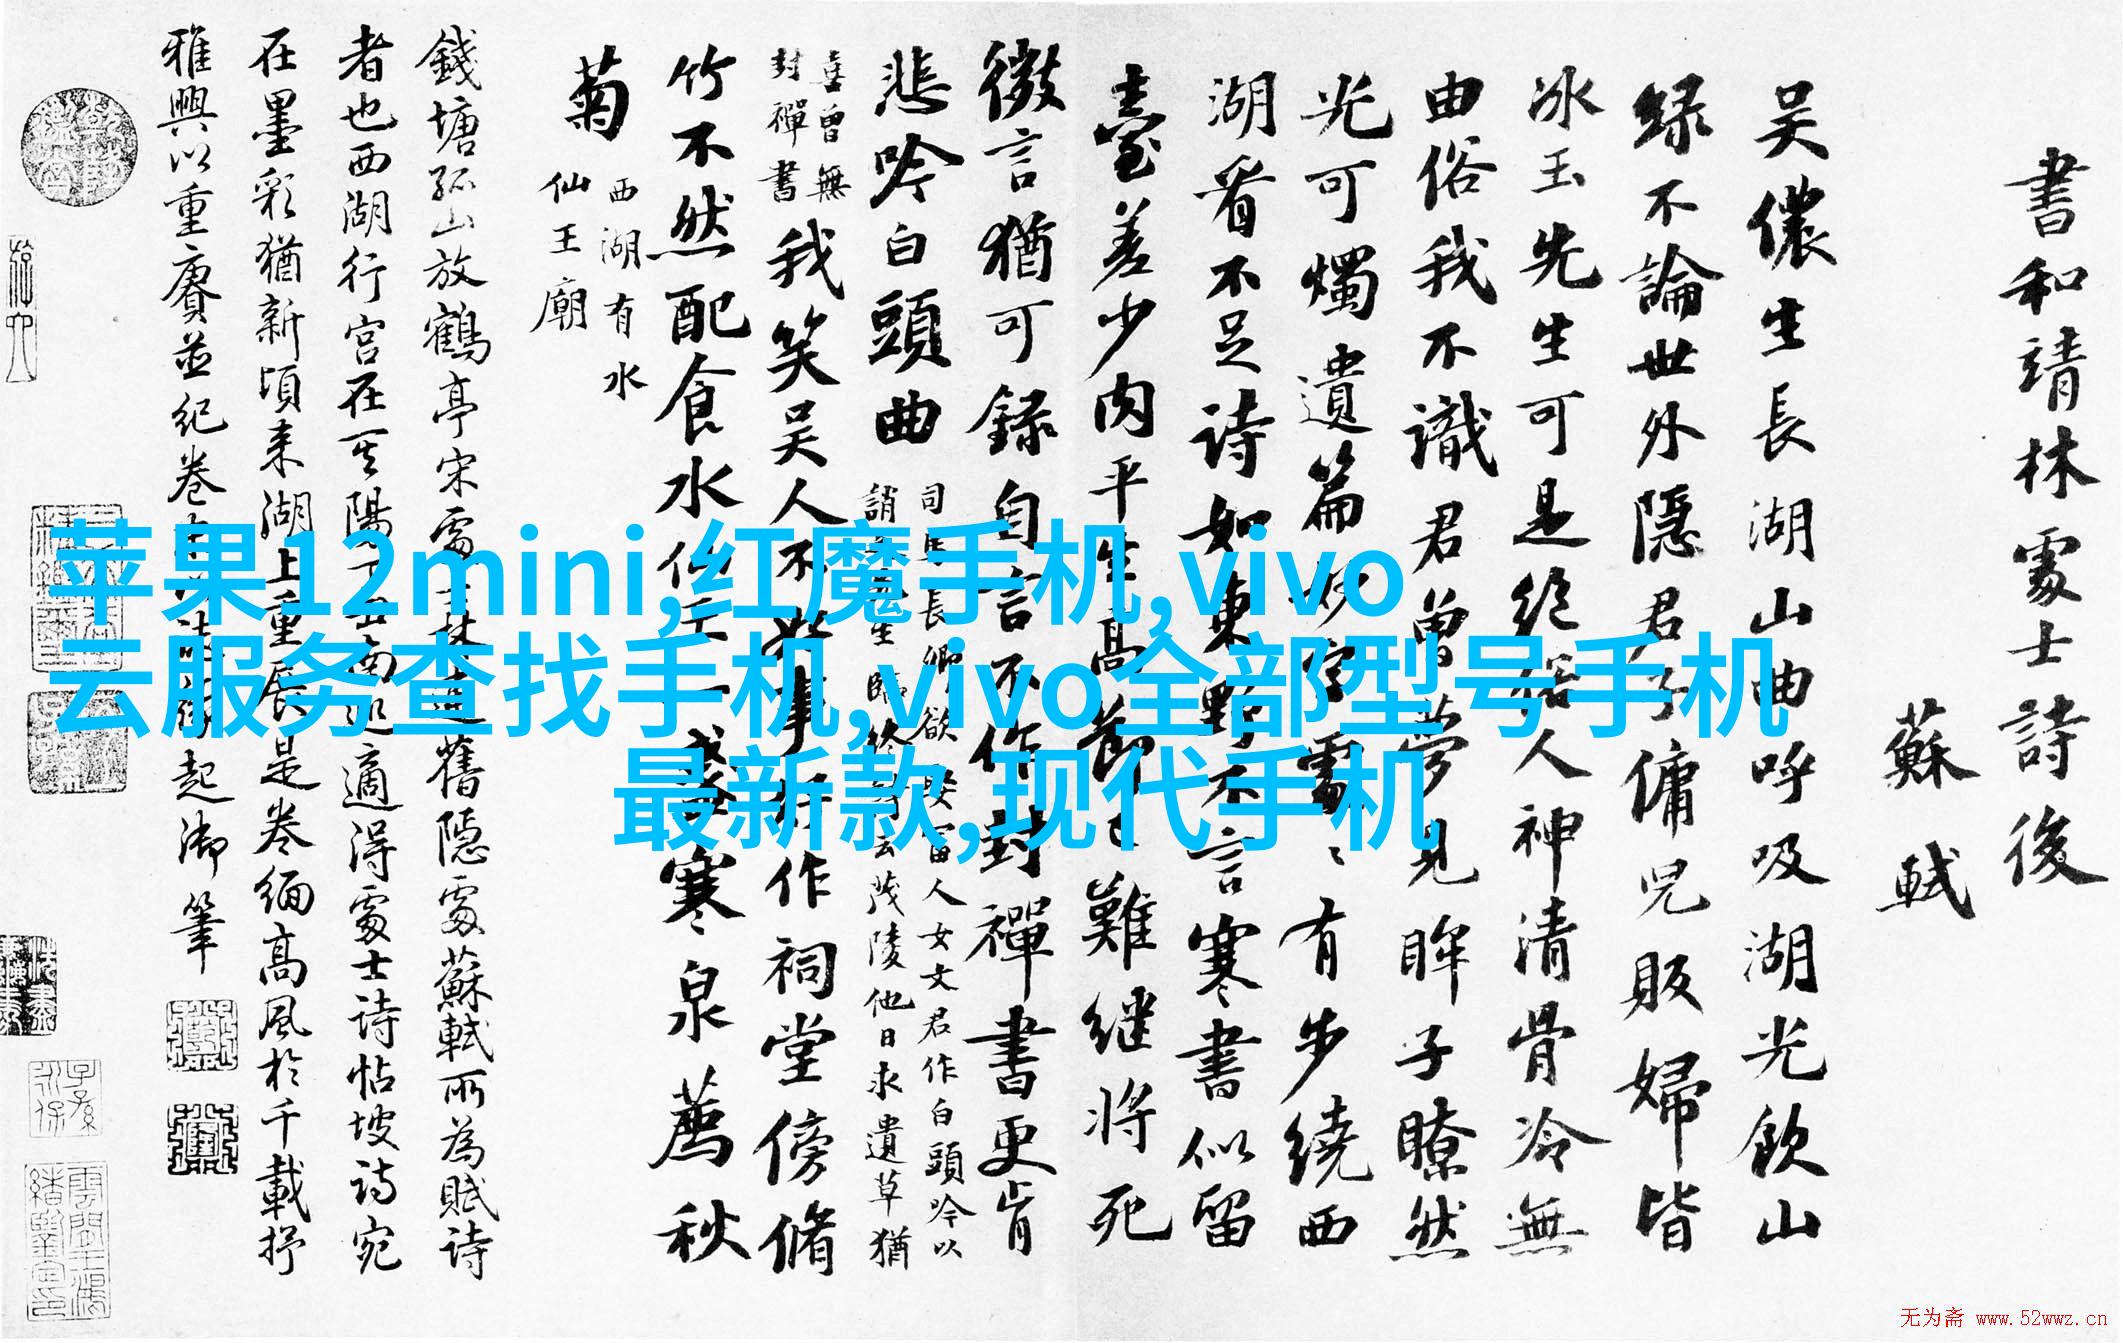 書和靖林處士詩後
蘇軾
吴儂生長湖山曲呼吸湖光飲山
緑不論世外隱君子傭兒販婦皆
冰玉先生可是絶俗人神清骨冷無
由俗我不識君曾夢見眸子瞭然
光可燭遺篇妙字處〻有步繞西
湖看不足詩如東野不言寒書似留
臺差少肉平生高節已難継將死
微言猶可録自言不作封禪書更肯
悲吟白頭曲
司馬長卿欲娶富人女文君作白頭吟以
誚之先生臨終詩云茂陵他日求遺草猶
喜曾無
封禪書
我笑吴人不好事好作祠堂傍脩
竹不然配食水仙王一盞寒泉薦秋
菊
西湖有水
仙王廟
錢塘孤山放鶴亭宋處士林逋舊隱處蘇軾所為賦詩
者也西湖行宫在其陽丁丑南巡適得處士詩帖坡詩宛
在墨彩猶新頃来湖上重展是卷緬高風於千載抒
雅興以重賡並紀卷緣起御筆
苹果12mini,红魔手机,vivo
云服务查找手机,vivo全部型号手机
最新款,现代手机
无为斋 www.52wwz.cn